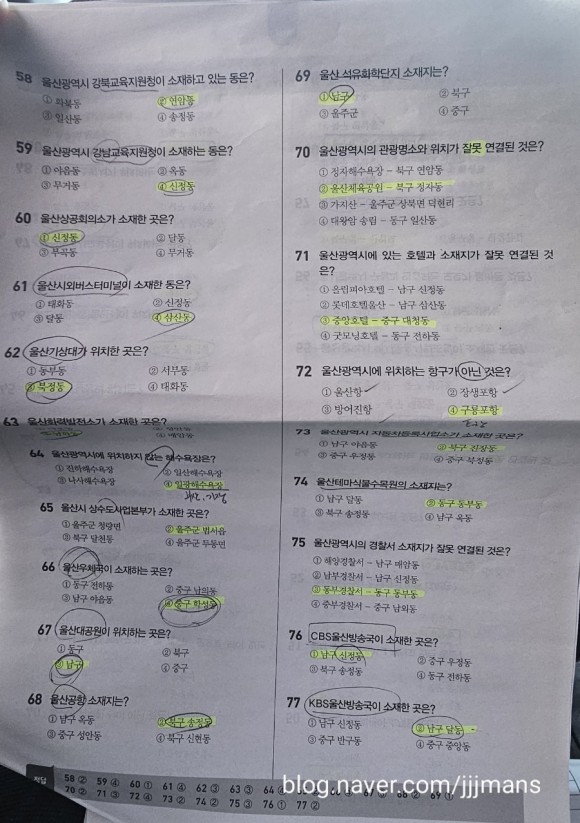 58 울산광역시 강북교육지원청이 소재하고 있는 동은?
① 화북동 ② 연암동
③ 일산동 ④ 송정동
59 울산광역시 강남교육지원청이 소재하는 동은?
① 야음동 ② 옥동
③ 무거동 ④ 신정동
60 울산상공회의소가 소재한 곳은?
① 신정동 ② 달동
③ 부곡동 ④ 무거동
61 울산시외버스터미널이 소재한 동은?
① 태화동 ② 신정동
③ 달동 ④ 삼산동
62 울산기상대가 위치한 곳은?
① 동부동 ② 서부동
③ 북정동 ④ 태화동
63 울산화력발전소가 소재한 곳은?
④ 매암동
64 울산광역시에 위치하지 않는 해수욕장은?
① 진하해수욕장 ② 일산해수욕장
③ 나사해수욕장 ④ 일광해수욕장
65 울산시 상수도사업본부가 소재한 곳은?
① 울주군 청량면 ② 울주군 범서읍
③ 북구 달천동 ④ 울주군 두동면
66 울산우체국이 소재하는 곳은?
① 동구 전하동 ② 중구 남외동
③ 남구 야음동 ④ 중구 학성동
67 울산대공원이 위치하는 곳은?
① 동구 ② 북구
③ 남구 ④ 중구
68 울산공항 소재지는?
① 남구 옥동 ② 북구 송정동
③ 중구 성안동 ④ 북구 신현동
69 울산 석유화학단지 소재지는?
① 남구 ② 북구
③ 울주군 ④ 중구
70 울산광역시의 관광명소와 위치가 잘못 연결된 것은?
① 정자해수욕장 – 북구 연암동
② 울산체육공원 – 북구 정자동
③ 가지산 – 울주군 상북면 덕현리
④ 대왕암 송림 – 동구 일산동
71 울산광역시에 있는 호텔과 소재지가 잘못 연결된 것
은?
① 올림피아호텔 – 남구 신정동
② 롯데호텔울산 – 남구 삼산동
③ 중앙호텔 – 중구 대청동
④ 굿모닝호텔 – 동구 전하동
72 울산광역시에 위치하는 항구가 아닌 것은?
① 울산항 ② 장생포항
③ 방어진항 ④ 구룡포항
73 울산광역시 자동차등록사업소가 소재한 곳은?
① 남구 야음동 ② 북구 진장동
③ 중구 우정동 ④ 중구 북정동
74 울산테마식물수목원의 소재지는?
① 남구 달동 ② 동구 동부동
③ 북구 송정동 ④ 남구 옥동
75 울산광역시의 경찰서 소재지가 잘못 연결된 것은?
① 해양경찰서 – 남구 매암동
② 남부경찰서 – 남구 신정동
③ 동부경찰서 – 동구 동부동
④ 중부경찰서 – 중구 남외동
76 CBS울산방송국이 소재한 곳은?
① 남구 신정동 ② 중구 우정동
③ 북구 송정동 ④ 동구 전하동
77 KBS울산방송국이 소재한 곳은?
① 남구 신정동 ② 남구 달동
③ 중구 반구동 ④ 중구 중앙동
정답 58 ② 59 ④ 60 ① 61 ④ 62 ③ 63 ③ 64 ④ 68 ② 69 ①
70 ② 71 ③ 72 ④ 73 ② 74 ② 75 ③ 76 ① 77 ②
blog.naver.com/jjjmans